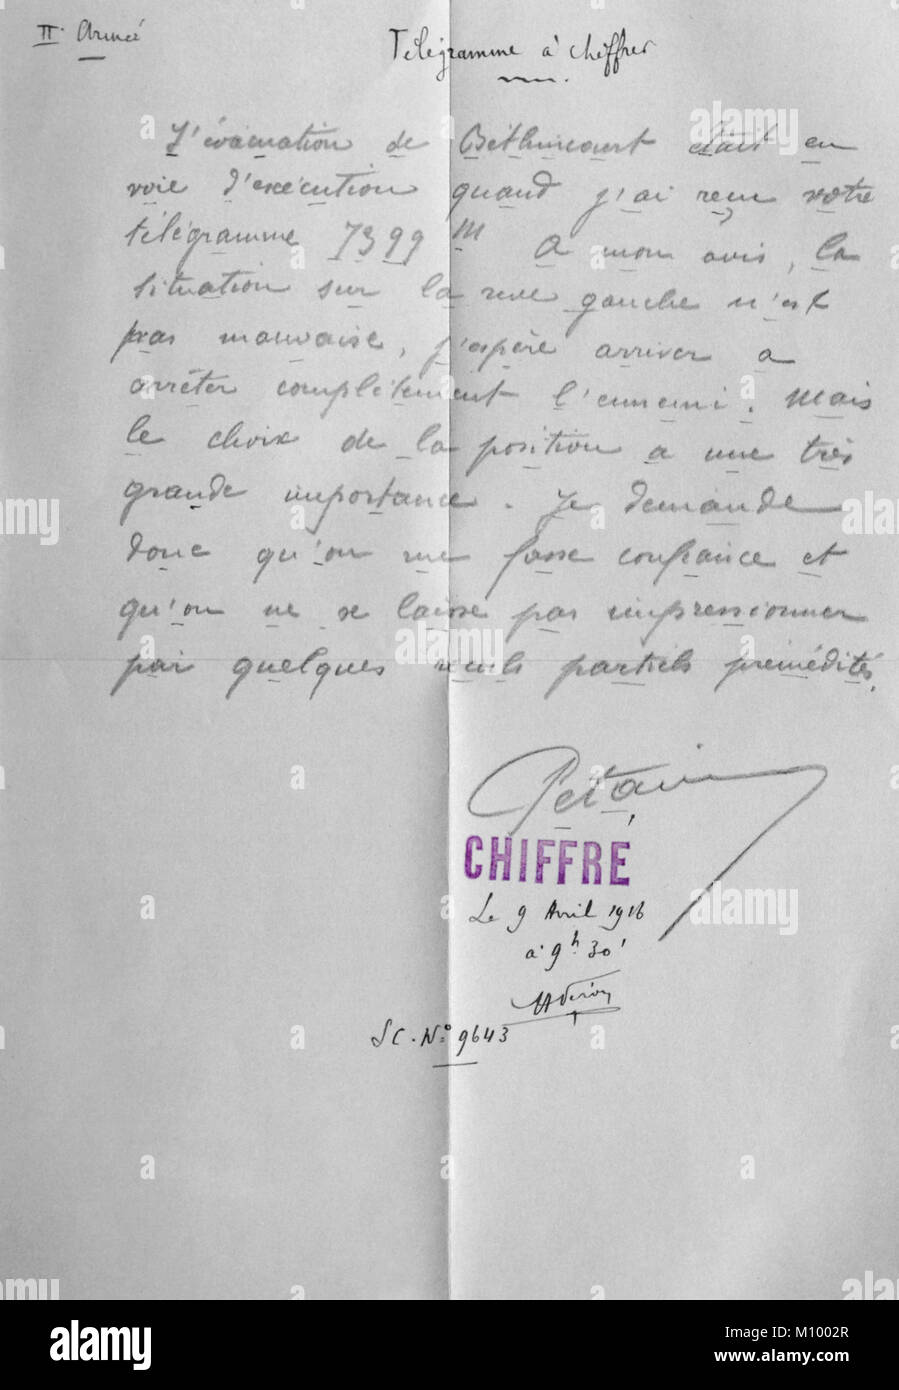 IIe Armée
Télégramme à chiffrer
L'évacuation de Béthincourt était en
voie d'exécution quand j'ai reçu votre
télégramme 7399 M A mon avis, la
situation sur la rive gauche n'est
pas mauvaise, j'espère arriver a
arrêter complètement l'ennemi. Mais
le choix de la position a une très
grande importance. Je demande
donc qu'on me fasse confiance et
qu'on ne se laisse pas impressionner
par quelques reculs partiels prémédités.
Pétain
CHIFFRÉ
Le 9 Avril 1916
à 9h 30'
SC. No 9643
alamy
Image ID: M1002R
www.alamy.com